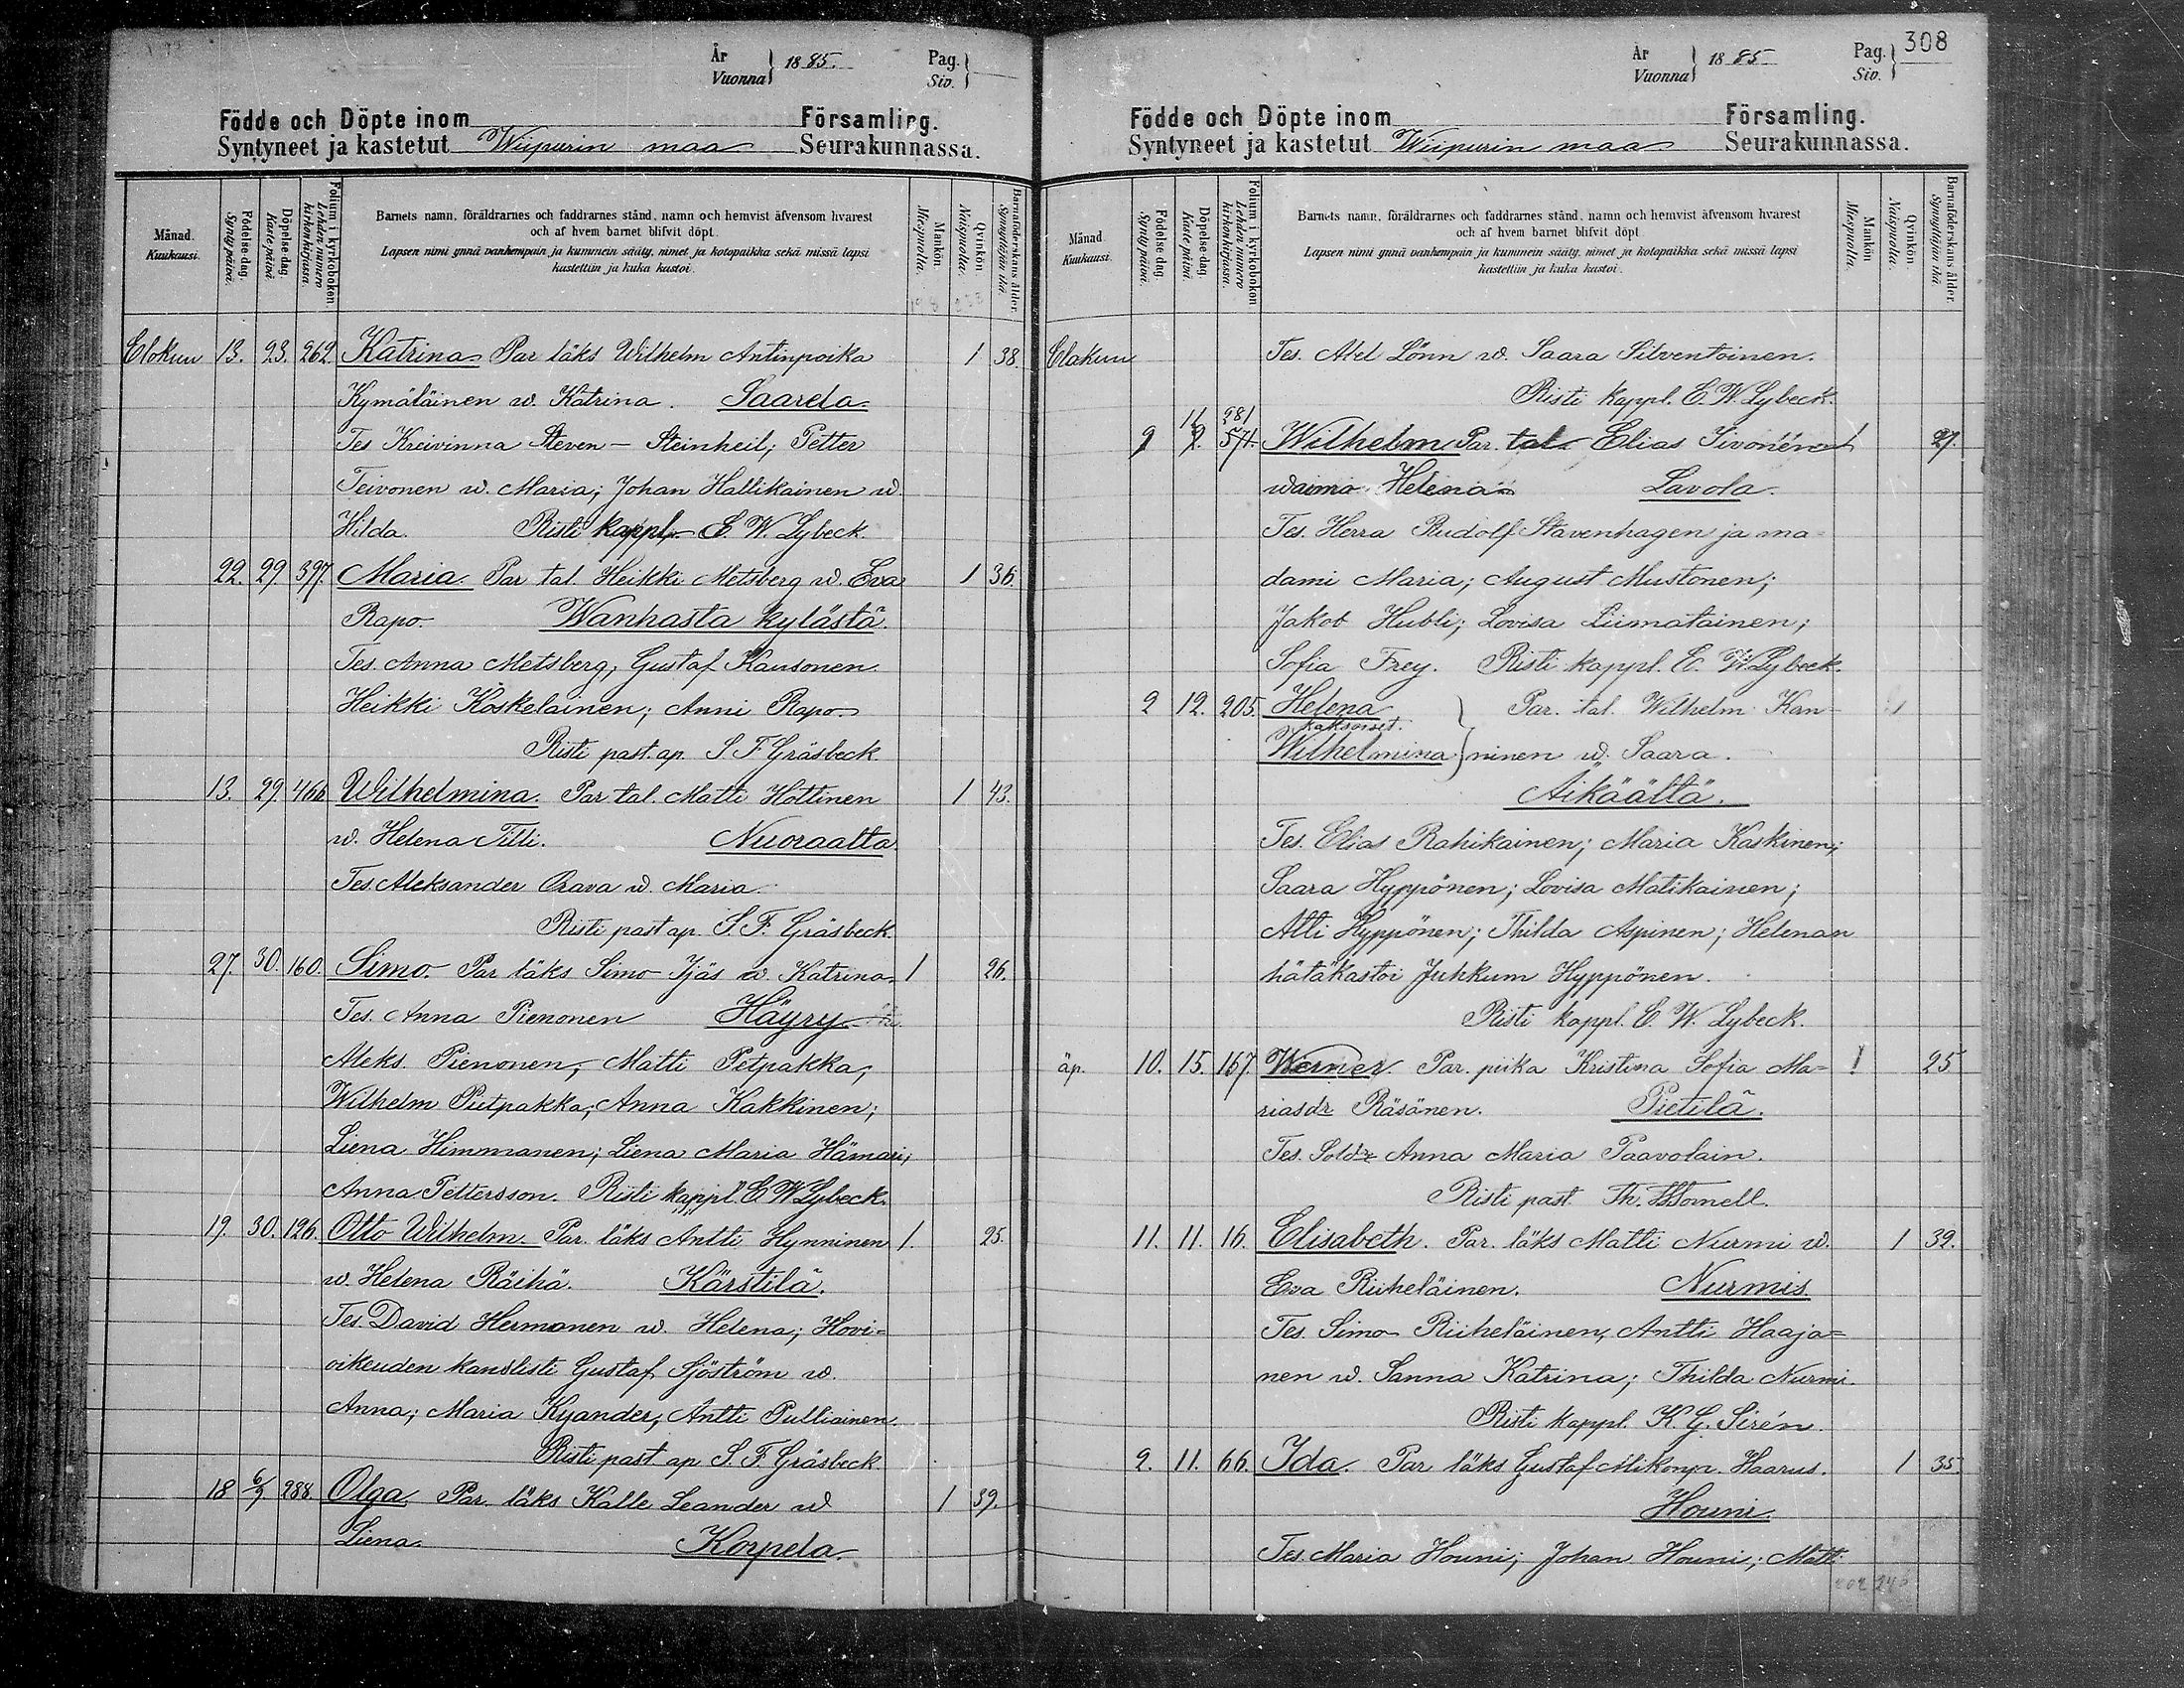 År
Vuonna } 1885.
Pag.
Siv. }
Födde och Döpte inom Församling.
Syntyneet ja kastetut Wiipurin maa Seurakunnassa.
Månad.
Kuukausi.
Födelse-dag.
Synty päivä.
Döpelse-dag.
Kaste päivä.
Folium i kyrkoboken
Lehden numero kirkonkirjassa.
Barnets namn, föräldrarnes och faddrarnes stånd, namn och hemvist äfvensom hvarest
och af hvem barnet blifvit döpt.
Lapsen nimi ynnä vanhempain ja kummein sääty, nimet ja kotopaikka sekä missä lapsi
kastettiin ja kuka kastoi.
Mankön.
Miespuolia.
Qvinkön.
Naispuolia.
Barnaföderskans ålder.
Synnyttäjän ikä
Elokuu 13. 23. 262. Katrina Par läks Wilhelm Antinpoika 1 38.
Kymäläinen w. Katrina. Saarela.
Tes Kreivinna Steven - Steinheil; Petter
Teivonen w. Maria; Johan Hallikainen w.
Hilda. Risti kappl. E. W. Lybeck.
22. 29 397. Maria. Par tal. Heikki Metsberg w. Eva 1 36.
Rapo. Wanhasta kylästä.
Tes. Anna Metsberg, Gustaf Kausonen.
Heikki Koskelainen; Anni Rapo.
Risti past. ap. S. F. Gräsbeck.
13. 29. 466 Wilhelmina. Par tal. Matti Hottinen 1 43.
w. Helena Tilli. Nuoraalta
Tes. Aleksander Orava w. Maria.
Risti past ap. S. F. Gräsbeck.
27. 30. 160. Simo. Par läks Simo Ijäs w. Katrina. 1 26.
Tes. Anna Pienonen Häyry
Aleks. Pienonen, Matti Petpakka,
Wilhelm Pietpakka; Anna Kakkinen;
Liena Himmanen; Liena Maria Hämari;
Anna Pettersson. Risti kappl. E W Lybeck.
19. 30. 126. Otto Wilhelm. Par. läks Antti Hynninen 1. 25.
w. Helena Räihä. Kärstilä.
Tes. David Hermonen w. Helena; Hovi=
oikeuden kanslisti Gustaf Sjöström w.
Anna; Maria Kyander, Antti Pulliainen.
Risti past ap S. F. Gräsbeck.
18 6/9 288. Olga. Par. läks Kalle Leander w 1 39.
Liena. Korpela.
308
År
Vuonna } 1885
Pag.
Siv. }
Födde och Döpte inom Församling.
Syntyneet ja kastetut Wiipurin maa Seurakunnassa.
Månad
Kuukausi.
Födelse-dag.
Synty päivä.
Döpelse-dag.
Kaste päivä.
Folium i kyrkoboken
Lehden numero kirkonkirjassa.
Barnets namn, föräldrarnes och faddrarnes stånd, namn och hemvist äfvensom hvarest
och af hvem barnet blifvit döpt
Lapsen nimi ynnä vanhempain ja kummein sääty, nimet ja kotopaikka sekä missä lapsi
kastettiin ja kuka kastoi.
Mankön
Miespuolia.
Qvinkön.
Naispuolia.
Barnaföderskans ålder.
Synnyttäjän ikä
Elakuu Tes. Abel Lönn w. Saara Silventoinen.
Risti kappl. E. W. Lybeck.
11 281
2 2. 571. Wilhelm Par. tal. Elias Sivonen 1 27.
waimo Helena Lavola.
Tes. Herra Rudolf Stavenhagen ja ma=
dami Maria; August Mustonen;
Jakob Hubli; Lovisa Liimatainen;
Sofia Frey. Risti kappl. E. W. Lybeck.
2 12. 205. Helena } Par. tal. Wilhelm Kan=
kaksoiset.
Wilhelmina } ninen w. Saara.
Äikäältä.
Tes. Elias Rahikainen; Maria Kaskinen;
Saara Hyppönen; Lovisa Matikainen;
Atti Hyppönen; Thilda Aspinen; Helenan
hätäkastoi Juhkum Hyppönen.
Risti kappl. E. W. Lybeck.
äp. 10. 15. 167. Werner. Par. piika Kristina Sofia Ma= 1 25
riasdr Räsänen. Pietilä.
Tes. Anna Maria Paavolain.
Risti past. Th.
11. 11. 16. Elisabeth. Par. läks Matti Nurmi w. 1 39.
Eva Riiheläinen. Nurmis.
Tes. Simo Riiheläinen, Antti Haaja=
nen w. Sanna Katrina; Thilda Nurmi.
Risti kappl. K. G. Sirén.
2. 11. 66. Ida. Par läks Gustaf Mikonp. Haarus. 1 35.
Houni.
Tes. Maria Houni; Johan Houni; Matti